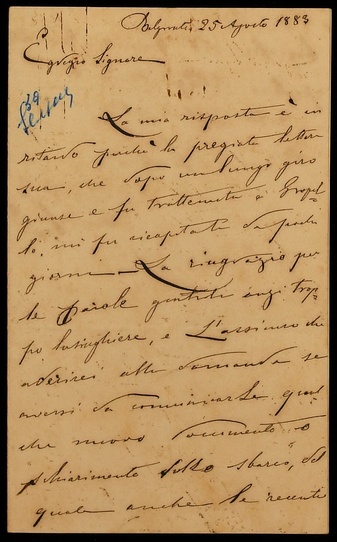 Belgirate, 25 Agosto 1883
Egregio Signore
La mia risposta è in
ritardo perchè la pregiata lettera
sua, che dopo un lungo giro
giunse e fu trattenuta a
lo, mi fu ricapitata da pochi
giorni. La ringrazio per
le parole gentili anzi trop=
po lusinghiere, e L'assicuro che
aderirei alla domanda se
avessi da comunicarLe qual=
che nuovo documento o
schiarimento sullo sbarco, del
quale anche le recenti